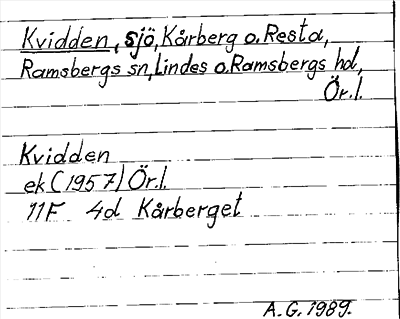 Kvidden, sjö, Kårberg o. Resta,
Ramsbergs sn, Lindes o. Ramsbergs hd,
Ör.l.
Kvidden
ek (1957) Ör.l.
11F 4d Kårberget
A.G. 1989.